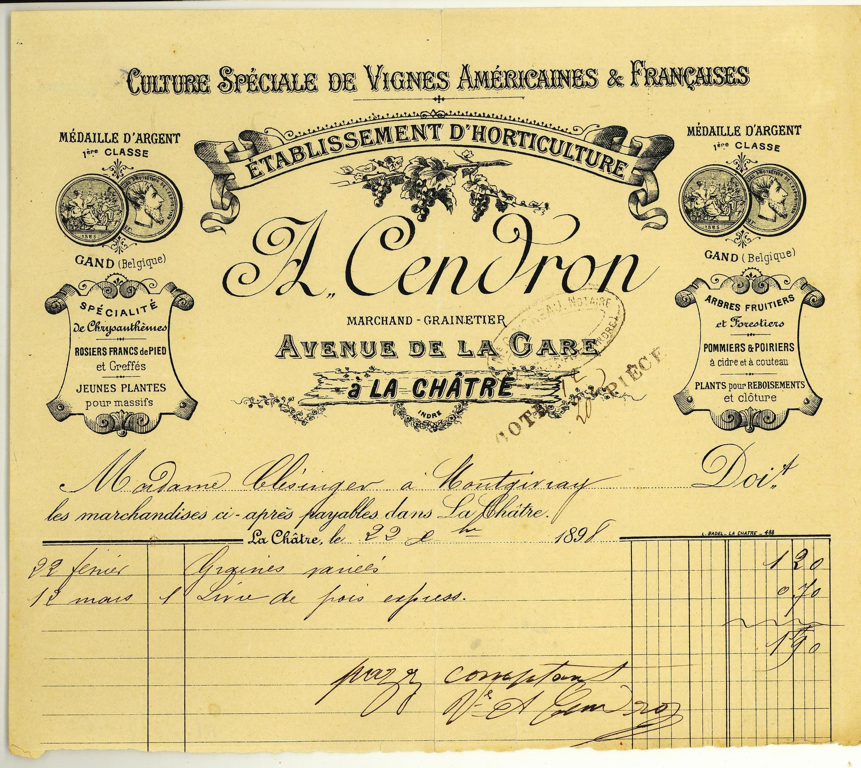 CULTURE SPÉCIALE DE VIGNES AMÉRICAINES & FRANÇAISES
ÉTABLISSEMENT D'HORTICULTURE
MÉDAILLE D'ARGENT
1ère CLASSE
GAND (Belgique)
SPÉCIALITÉ
de Chrysanthèmes
ROSIERS FRANCS de PIED
et Greffés
JEUNES PLANTES
pour massifs
A. Cendron
MARCHAND - GRAINETIER
AVENUE DE LA GARE
à LA CHÂTRE
INDRE
NOTAIRE
COTE PIÈCE
MÉDAILLE D'ARGENT
1ère CLASSE
GAND (Belgique)
ARBRES FRUITIERS
et Forestiers
POMMIERS & POIRIERS
à cidre et à couteau
PLANTS pour REBOISEMENTS
et clôture
Madame Clésinger à Montgivray Doit
les marchandises ci-après payables dans La Châtre.
La Châtre, le 22 1898
L. BADEL. LA CHATRE
22 février Graines variées 1 20
12 mars 1 Livre de pois express. 0 70
1 90
payez comptant
Ve A Cendron